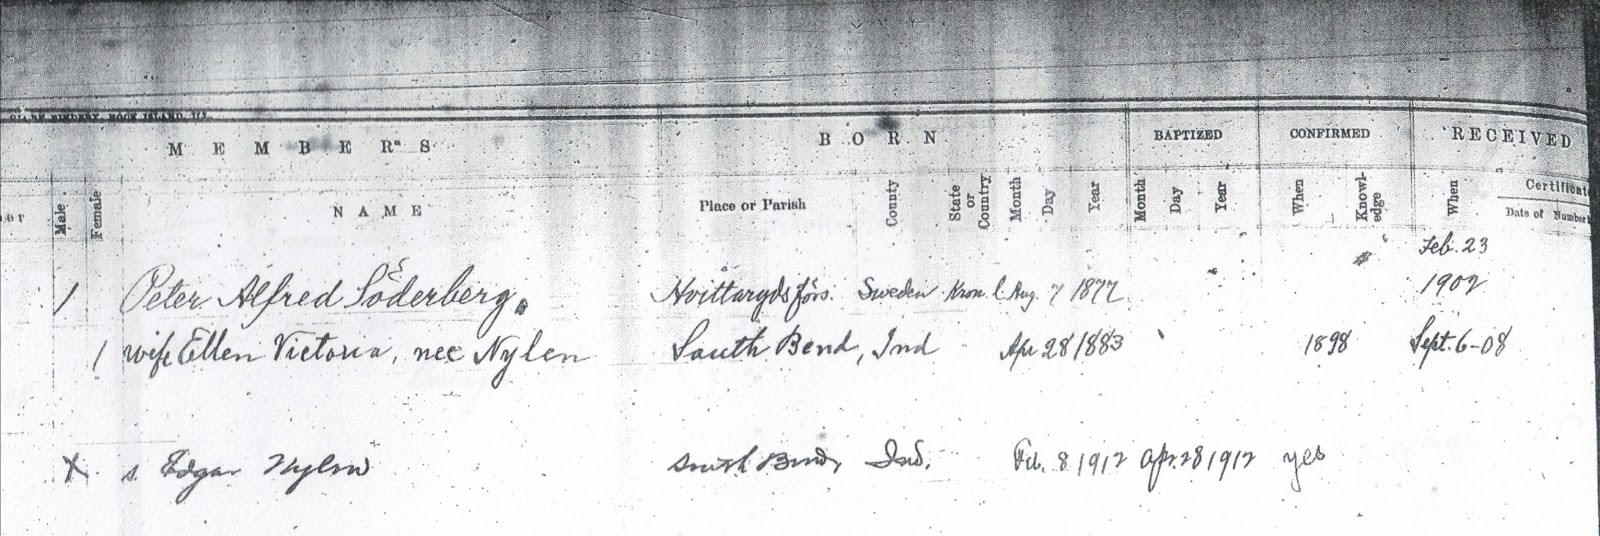 BINDERY, ROCK ISLAND, ILL.
MEMBERS BORN BAPTIZED CONFIRMED RECEIVED
Male Female NAME Place or Parish County State or Country Month Day Year Month Day Year When Knowledge When Certificate
Date of Number
Feb. 23
1 Peter Alfred Söderberg. Hvittaryds förs. Sweden Kron. l. Aug. 7 1877 1902
1 wife Ellen Victoria, nee Nylen South Bend, Ind Apr 28 1883 1898 Sept. 6-08
X s. Edgar Nylen South Bend, Ind. Feb. 8 1912 Apr. 28 1912 yes